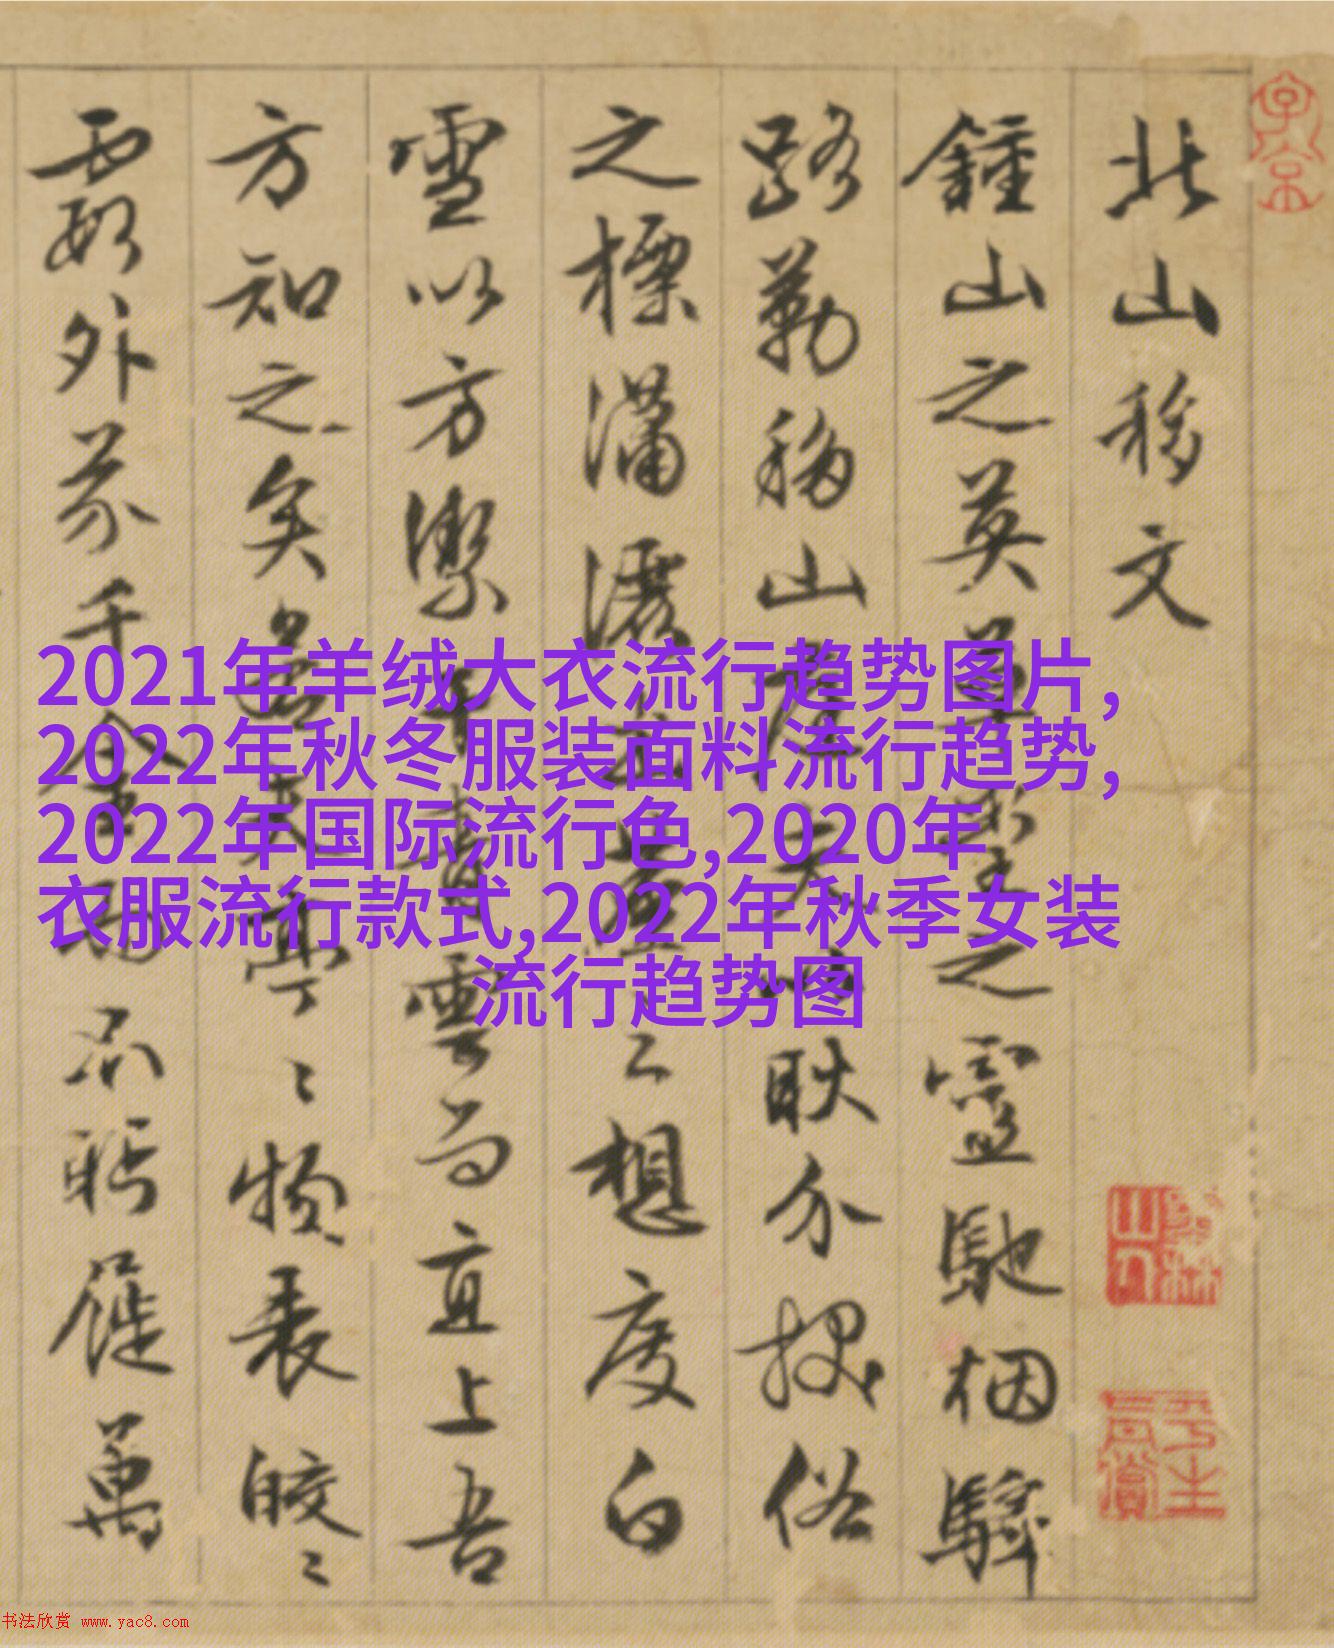 北山移文
鍾山之英草堂之靈馳烟驛
路勒移山庭夫以耿介拔俗
之標瀟灑出塵之想度白
雪以方潔干青雲而直上吾
方知之矣若其亭〻物表皎〻
霞外芥千金而不眄屣萬
2021年羊绒大衣流行趋势图片,
2022年秋冬服装面料流行趋势,
2022年国际流行色,2020年
衣服流行款式,2022年秋季女装
流行趋势图
书法欣赏 www.yac8.com